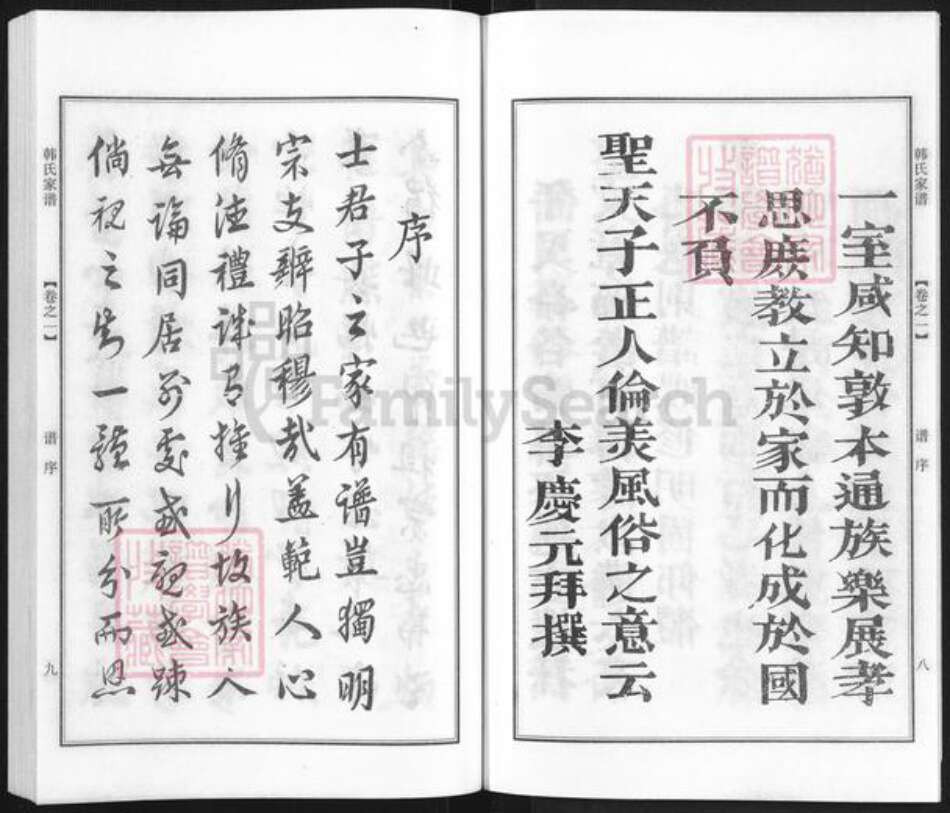 韩氏家谱
【卷之一】
谱序
八
一室咸知敦本通族樂展孝
思庶教立於家而化成於國
不負
聖天子正人倫美風俗之意云
李慶元拜撰
序
士君子之家有譜豈獨明
宗支辨昭穆哉蓋範人心
脩法禮誅
故族人
無論同居別處或親或疎
倘視之
一體所分而恩
韩氏家谱
【卷之一】
谱序
九
FamilySearch